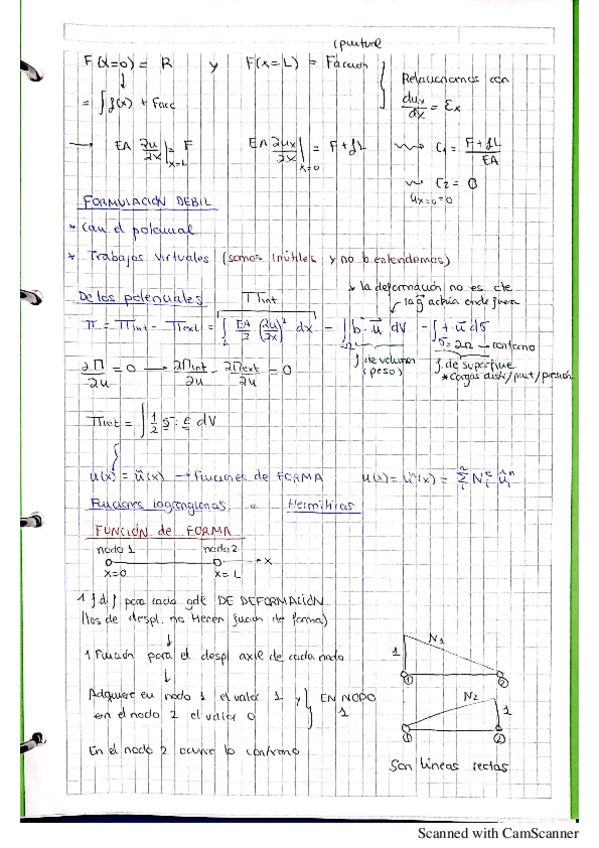 (puntual
F(x=0) = R y F(x=L) = Facción
Relacionamos con
= ∫ f(x) + Facc
dux/dx = Ex
→ EA ∂u/∂x |x=L = F EA ∂ux/∂x |x=0 = F + fL ⇝ C1 = F+fL/EA
⇝ C2 = 0
ux=0 = 0
FORMULACIÓN DEBIL
* Con el potencial
* Trabajos virtuales (somos inútiles y no lo entendemos)
De los potenciales
Πint
* la deformación no es cte
Π = Πint - Πext = ∫L EA/2 (∂u/∂x)² dx - ∫∫ b · u dV - ∫ t · u dσ
σ = ∂Ω → contorno
∂Π/∂u = 0 → ∂Πint/∂u - ∂Πext/∂u = 0
f. de volumen
(peso)
f. de superficie
* cargas distr/punt/presión
Πint = ∫ 1/2 σ : ε dV
u(x) = ũ(x) → Funciones de FORMA u(x) = ũ(x) = Σ Ni^e ûi^n
Funciones lagrangianas o Hermíticas
FUNCIÓN de FORMA
nodo 1 nodo 2
x
x=0 x=L
1 f.d.f para cada gdl DE DEFORMACIÓN
(los de despl. no tienen función de forma)
↓
1 Función para el despl axil de cada nodo
↓
Adquiere en nodo 1 el valor 1 y
en el nodo 2 el valor 0
EN NODO
1
En el nodo 2 ocurre lo contrario
1 N1
① ②
N2 1
① ②
Son líneas rectas
Scanned with CamScanner